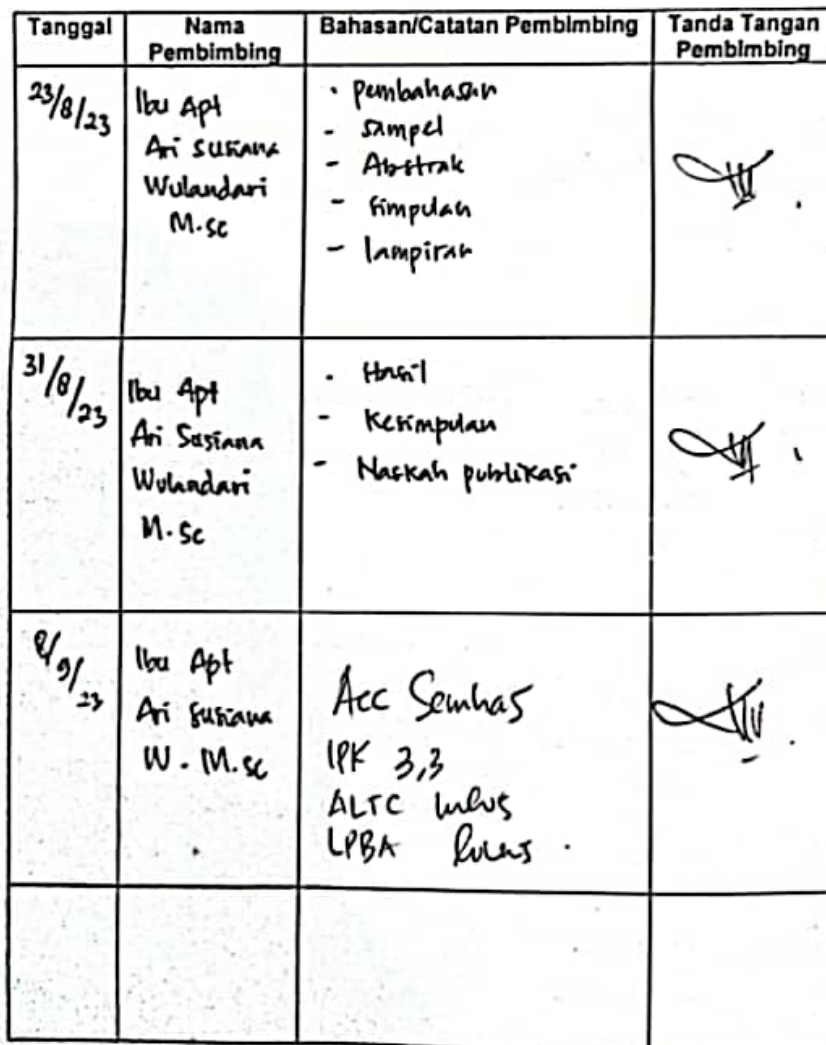 Tanggal Nama Pembimbing Bahasan/Catatan Pembimbing Tanda Tangan Pembimbing
23/8/23
Ibu Apt
Ari Susiana
Wulandari
M.sc
· pembahasan
- sampel
- Abstrak
- simpulan
- lampiran
31/8/23
Ibu Apt
Ari Susiana
Wulandari
M.Sc
· Hasil
- Kesimpulan
- Naskah publikasi
8/9/23
Ibu Apt
Ari Susiana
W. M.sc
Acc Semhas
IPK 3,3
ALTC lulus
LPBA lulus.